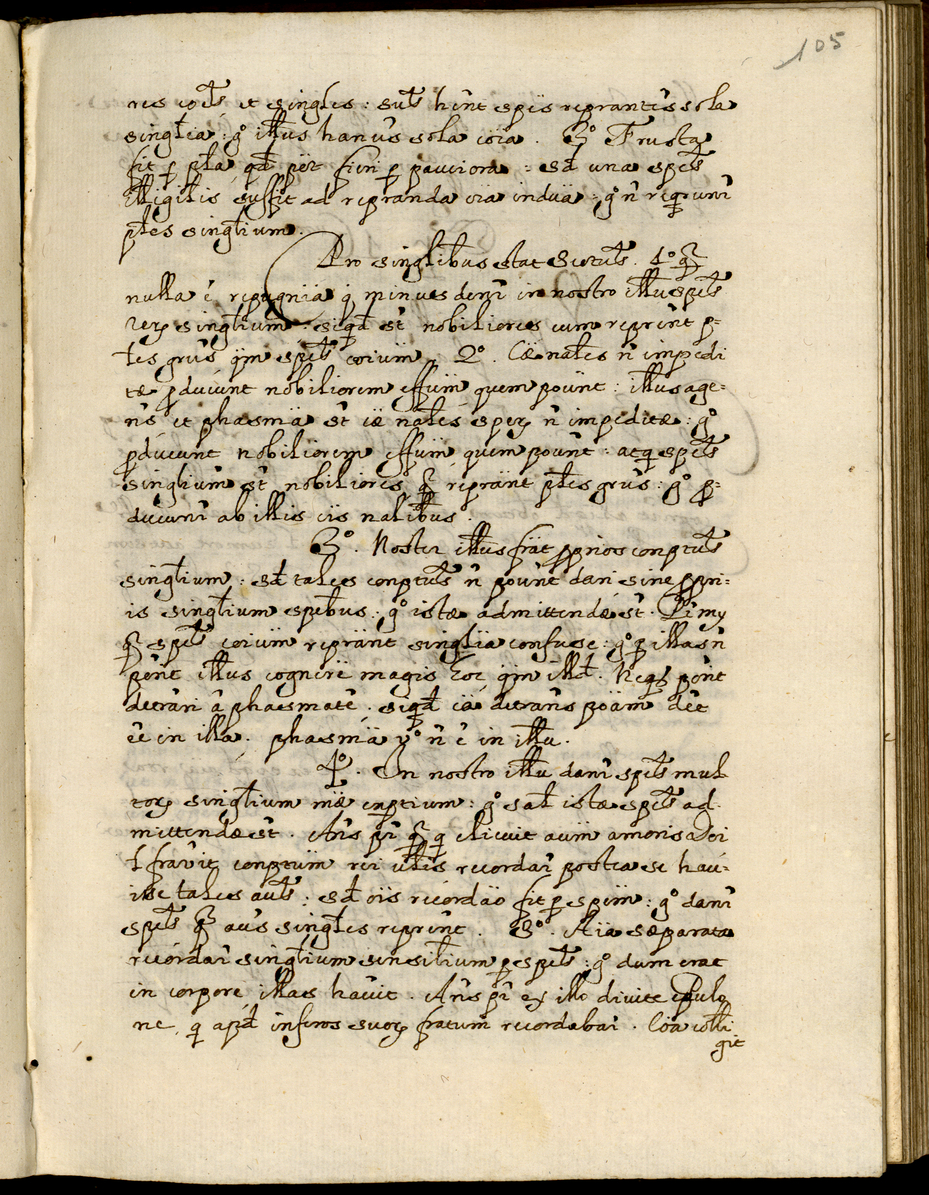 105
res coēs et singles : sūs hēnt spēs reprantēs sola
singlia : gº illus hanūs sola cōia . 3º Frusta
fit p pla qd pēt fieri p pauciora : sd una spēs
illigilis suffit ad repranda oia indua : gº ñ requrunī
ples singlium .
Pro singlibus stat Scotus . 1º q
nulla ē repugnia q minues denī in nostro illu spēs
rerz singlium : siqd st nobiliores cum reprēnt p-
les grūs qm spēs coium . 2º . Cæ nales ñ impedi
tæ pducunt nobiliorem effum quem pount : illus age-
ns et phasma st cæ nales semperz ñ impeditæ : gº
pducunt nobiliorem effum quem pount : atq spēs
singlium st nobiliores q reprānt ples grūs : gº p-
ducunī ab illis ciis nalibus .
3º . Noster illus frāt pprios conptus
singlium : sd tales conptus ñ pount dari sine ppri-
is singlium spēbus : gº istæ admittendæ st . Pī my
q spēs coium reprānt singlia confuse : gº p illas ñ
pōnt illus cognēre magis hoc qm illd . Neqz pōnt
detrāri a phasmate . siqd ca detrāns poām dēt
ēe in illa . phasma vº ñ ē in illu .
4º . In nostro illu danī spēs mul
torz singlium mæ exptium : gº sal istæ spēs ad
mittendæ st . Ans pī q q elicuit aum amoris Dei
l fravit conptum rei ulis recordaī postea se hau-
isse tales aus : sd oīs recordāo fit p spēm : gº danī
spēs q aus singles reprēnt . 3º . Aīa sæparata
recordaī singlium sensilium p spēs : gº dum erat
in corpore illas hauit . Ans pī ex illo divite epulo
ne , q apd inferos suorz fratum recordabaī . Cōa colli
git